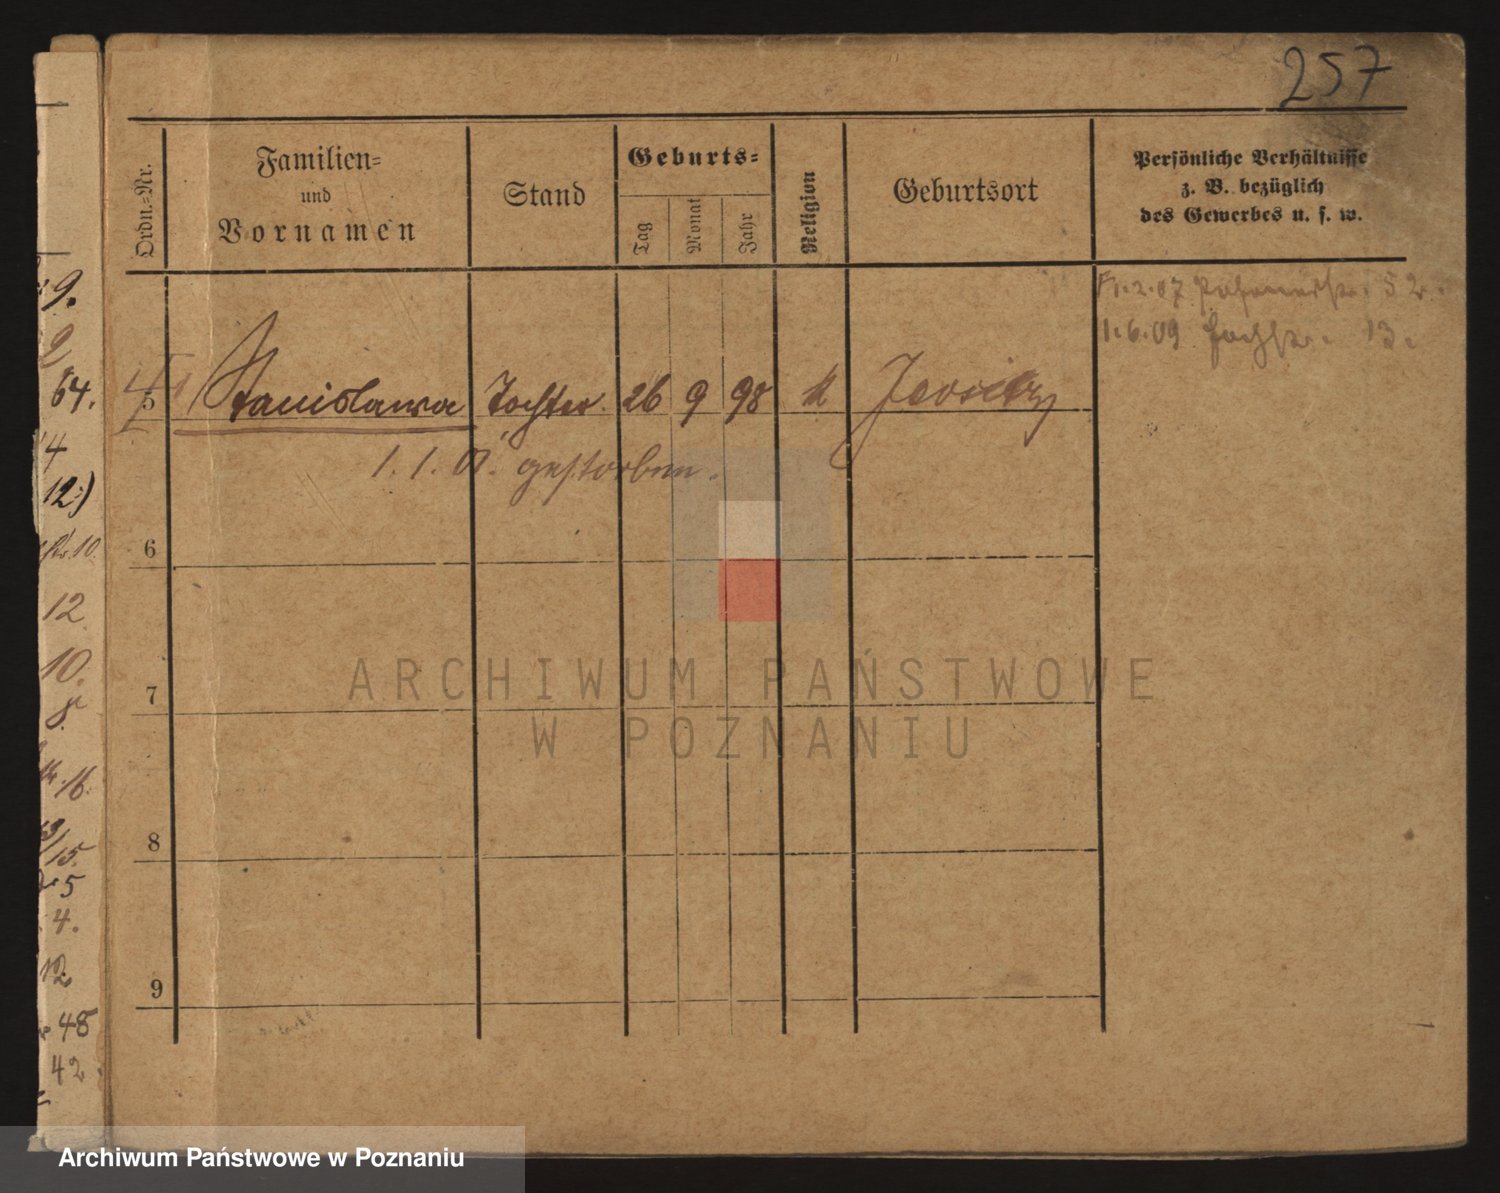 257
Ordn.-Nr.
Familien-
und
Vornamen
Stand
Geburts-
Tag
Monat
Jahr
Religion
Geburtsort
Persönliche Verhältnisse
z. B. bezüglich
des Gewerbes u. s. w.
1.2.07 52.
1.6.09 13.
5 Stanislawa Tochter 26 9 98 k
1.1.01. gestorben.
6
7
8
9
9.
2
64.
4
12)
10.
12
10.
8
16.
15.
5
4.
12
48
42
ARCHIWUM PAŃSTWOWE
W POZNANIU
Archiwum Państwowe w Poznaniu